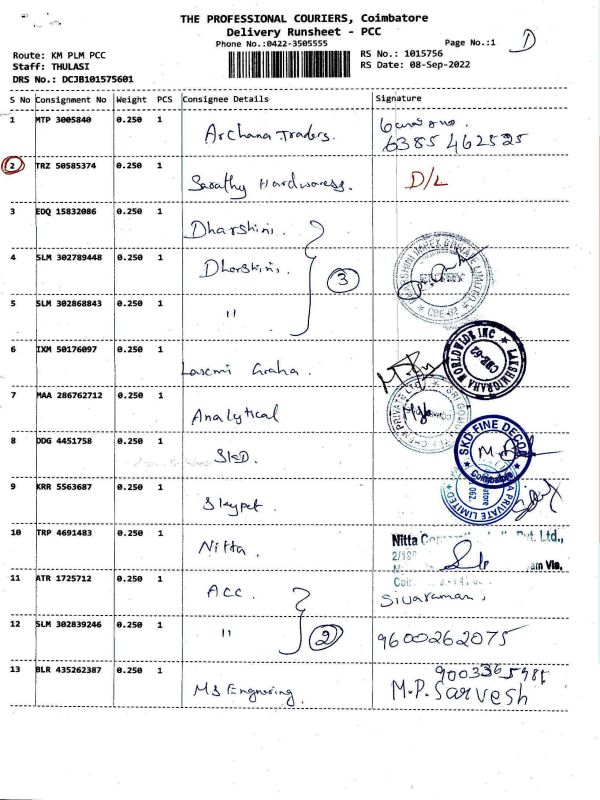 THE PROFESSIONAL COURIERS, Coimbatore
Delivery Runsheet - PCC
Phone No.:0422-3505555
Page No.:1 D
Route: KM PLM PCC
RS No.: 1015756
Staff: THULASI
RS Date: 08-Sep-2022
DRS No.: DCJB101575601
S No Consignment No Weight PCS Consignee Details Signature
1 MTP 3005840 0.250 1 Archana Traders.
6385462525
2 TRZ 50585374 0.250 1 Sarathy Hardwaress. D/L
3 EDQ 15832086 0.250 1 Dharshini.
4 SLM 302789448 0.250 1 Dharshini. 3
5 SLM 302868843 0.250 1 "
6 IXM 50176097 0.250 1 Laxmi Graha.
LAKSHMIGRAHA WORLDWIDE INC
CBE-02
7 MAA 286762712 0.250 1 Analytical
8 DDG 4451758 0.250 1 SKD.
SKD FINE DECOR
Coimbatore
9 KRR 5563687 0.250 1 Skypet
PRIVATE LIMITED
10 TRP 4691483 0.250 1 Nitta.
Nitta Pvt. Ltd.,
11 ATR 1725712 0.250 1 ACC.
Sivaraman.
12 SLM 302839246 0.250 1 " 2 9600262075
13 BLR 435262387 0.250 1 MS Engnering.
M.P.Sarvesh